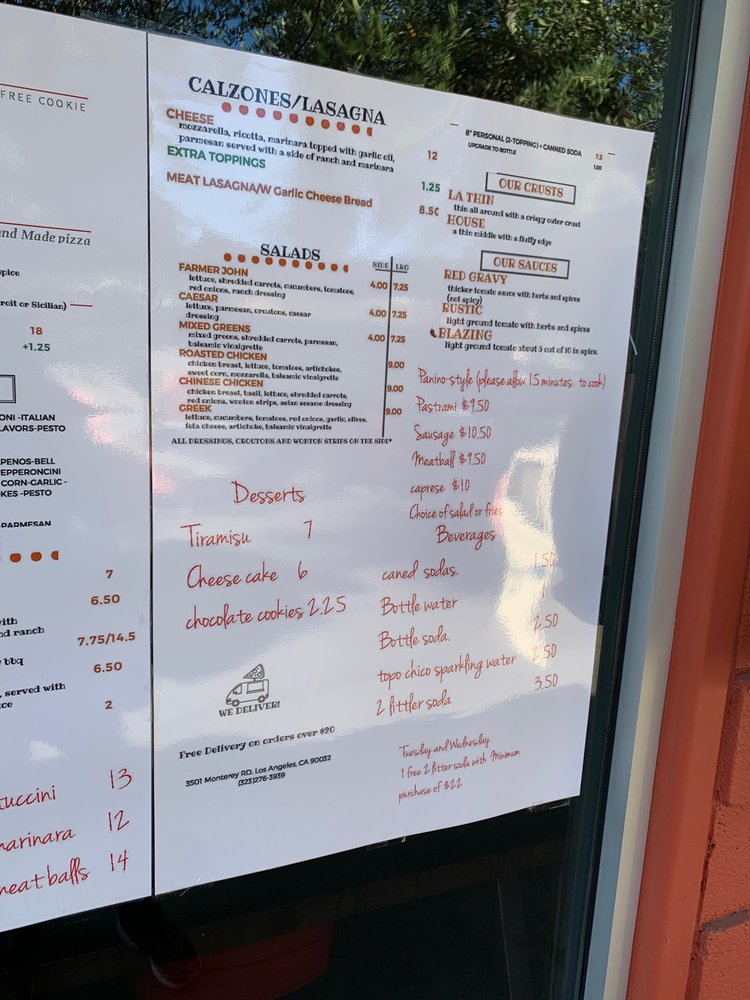 FREE COOKIE
nd Made pizza
spice
roit or Sicilian)
18
+1.25
ONI -ITALIAN
LAVORS-PESTO
PENOS-BELL
PEPPERONCINI
CORN-GARLIC -
OKES -PESTO
-PARMESAN
7
6.50
with
nd ranch
7.75/14.5
bbq
6.50
, served with
ce
2
tuccini 13
marinara 12
meatballs 14
CALZONES/LASAGNA
CHEESE
mozzarella, ricotta, marinara topped with garlic oil,
parmesan served with a side of ranch and marinara 12
EXTRA TOPPINGS 1.25
MEAT LASAGNA/W Garlic Cheese Bread 8.50
SALADS
SIDE LRG
FARMER JOHN
lettuce, shredded carrots, cucumbers, tomatoes, 4.00 7.25
red onions, ranch dressing
CAESAR
lettuce, parmesan, croutons, caesar 4.00 7.25
dressing
MIXED GREENS
mixed greens, shredded carrots, parmesan, 4.00 7.25
balsamic vinaigrette
ROASTED CHICKEN
chicken breast, lettuce, tomatoes, artichokes, 9.00
sweet corn, mozzarella, balsamic vinaigrette
CHINESE CHICKEN
chicken breast, basil, lettuce, shredded carrots, 9.00
red onions, wonton strips, asian sesame dressing
GREEK
lettuce, cucumbers, tomatoes, red onions, garlic, olives, 9.00
feta cheese, artichoke, balsamic vinaigrette
ALL DRESSINGS, CROUTONS AND WONTON STRIPS ON THE SIDE*
Desserts
Tiramisu 7
Cheese cake 6
chocolate cookies 2.25
WE DELIVER!
Free Delivery on orders over $20
3501 Monterey RD, Los Angeles, CA 90032
(323)276-3939
8" PERSONAL (2-TOPPING) + CANNED SODA 7.5
UPGRADE TO BOTTLE 1.00
OUR CRUSTS
LA THIN
thin all around with a crispy outer crust
HOUSE
a thin middle with a fluffy edge
OUR SAUCES
RED GRAVY
thicker tomato sauce with herbs and spices
(not spicy)
RUSTIC
light ground tomato with herbs and spices
BLAZING
light ground tomato about 5 out of 10 in spice.
Panino-style (please allow 15 minutes to cook)
Pastrami $9.50
Sausage $10.50
Meatball $9.50
caprese $10
Choice of salad or fries
Beverages
caned sodas. 1.50
Bottle water
Bottle soda. 2.50
topo chico sparkling water 2.50
2 littler soda 3.50
Tuesday and Wednesday
1 free 2 litter soda with Minimum
purchase of $22